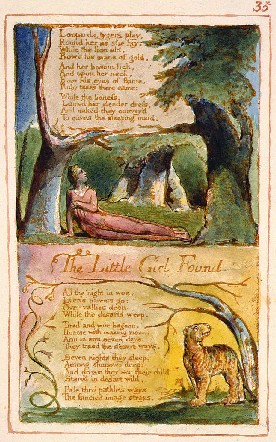 35
Leopards, tygers play,
Round her as she lay;
While the lion old,
Bow'd his mane of gold,
And her bosom lick,
And upon her neck,
From his eyes of flame,
Ruby tears there came;
While the lioness
Loos'd her slender dress,
And naked they convey'd
To caves the sleeping maid.
The Little Girl Found
All the night in woe
Lyca's parents go:
Over vallies deep,
While the desarts weep.
Tired and woe-begone,
Hoarse with making moan:
Arm in arm seven days,
They trac'd the desart ways.
Seven nights they sleep,
Among shadows deep:
And dream they see their child
Starv'd in desart wild.
Pale thro pathless ways
The fancied image strays,